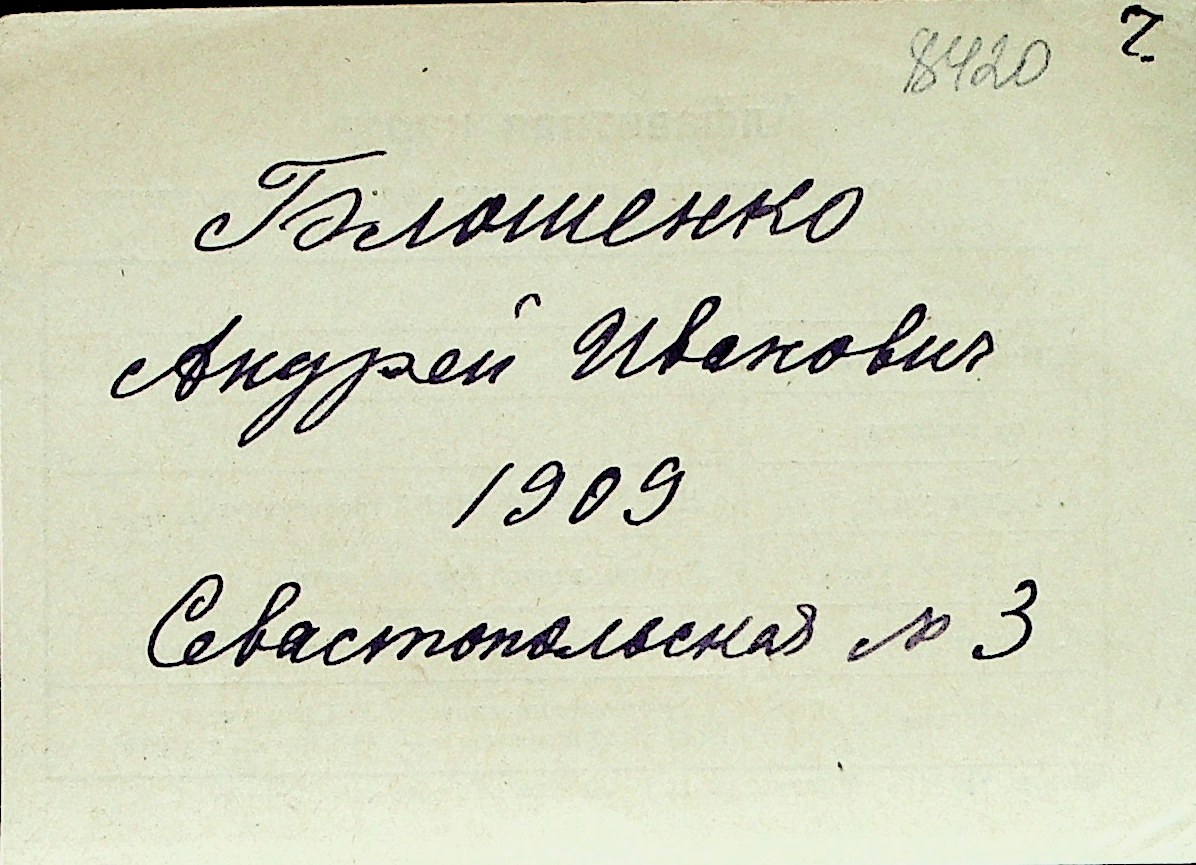 8420
Блошенко
Андрей Иванович
1909
Севастопольская № 3